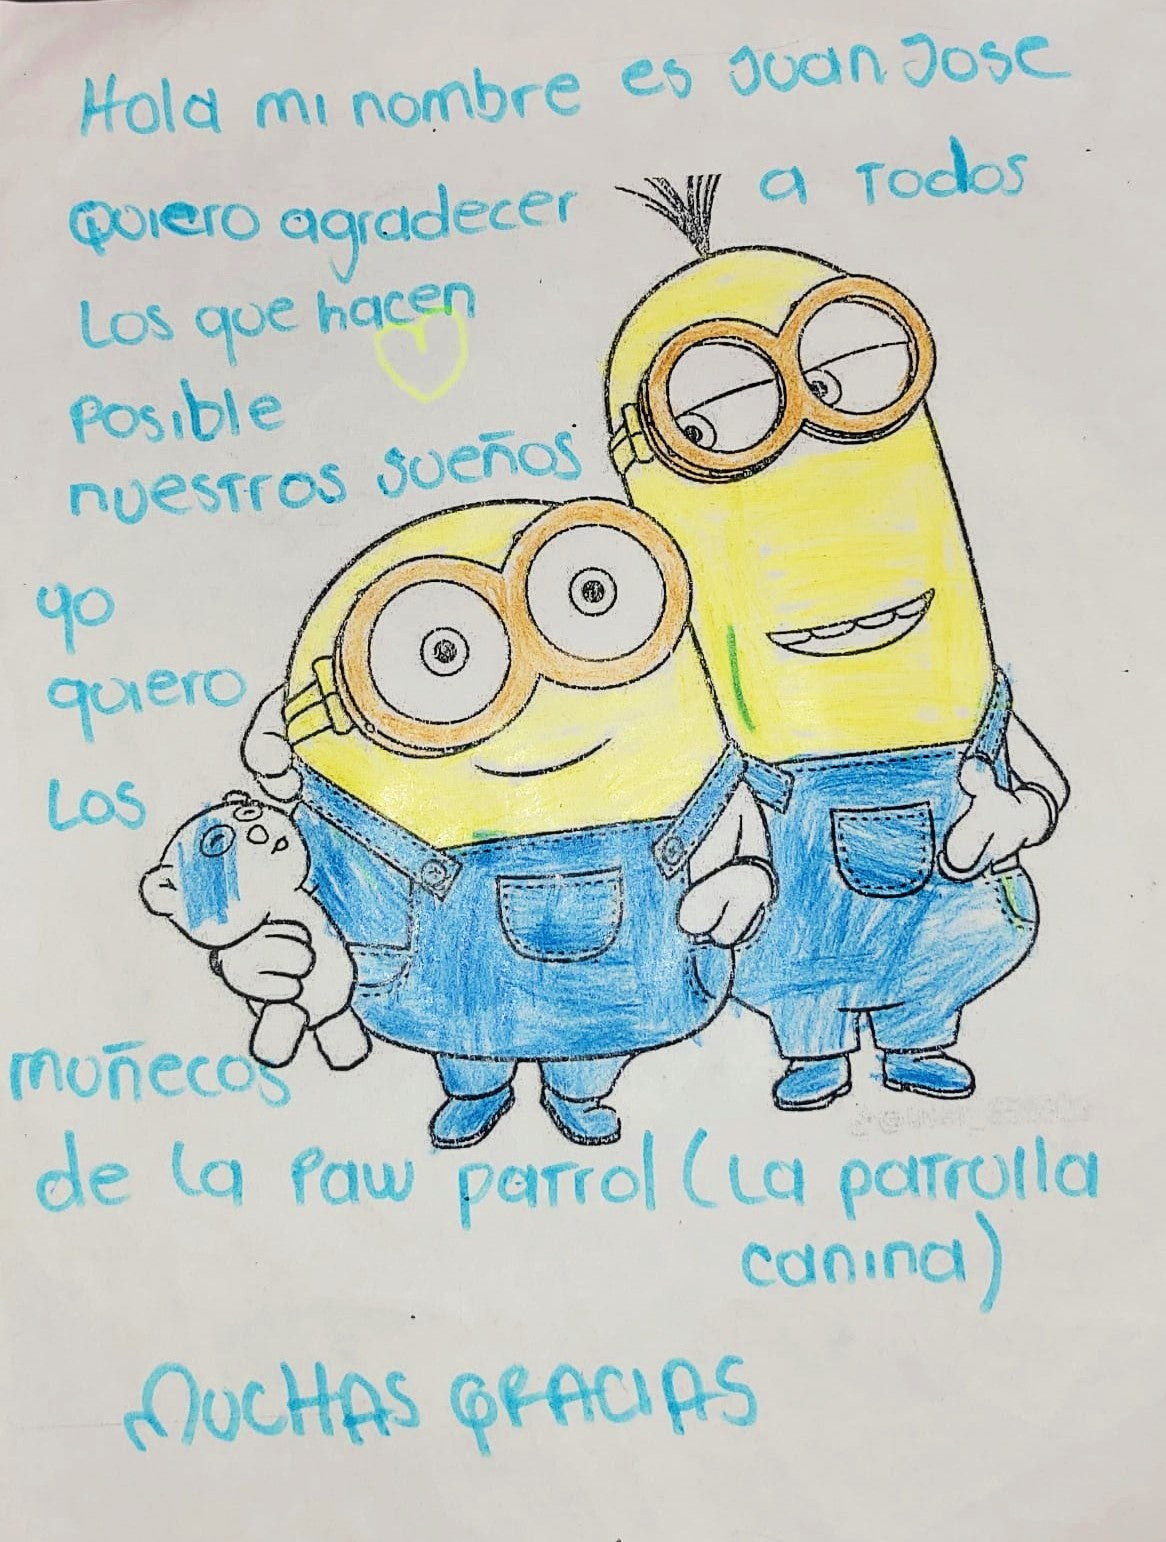 Hola mi nombre es Juan Jose
Quiero agradecer a Todos
Los que hacen
Posible
nuestros sueños
yo
quiero
Los
muñecos
de la Paw patrol (La patrulla
canina)
MUCHAS GRACIAS